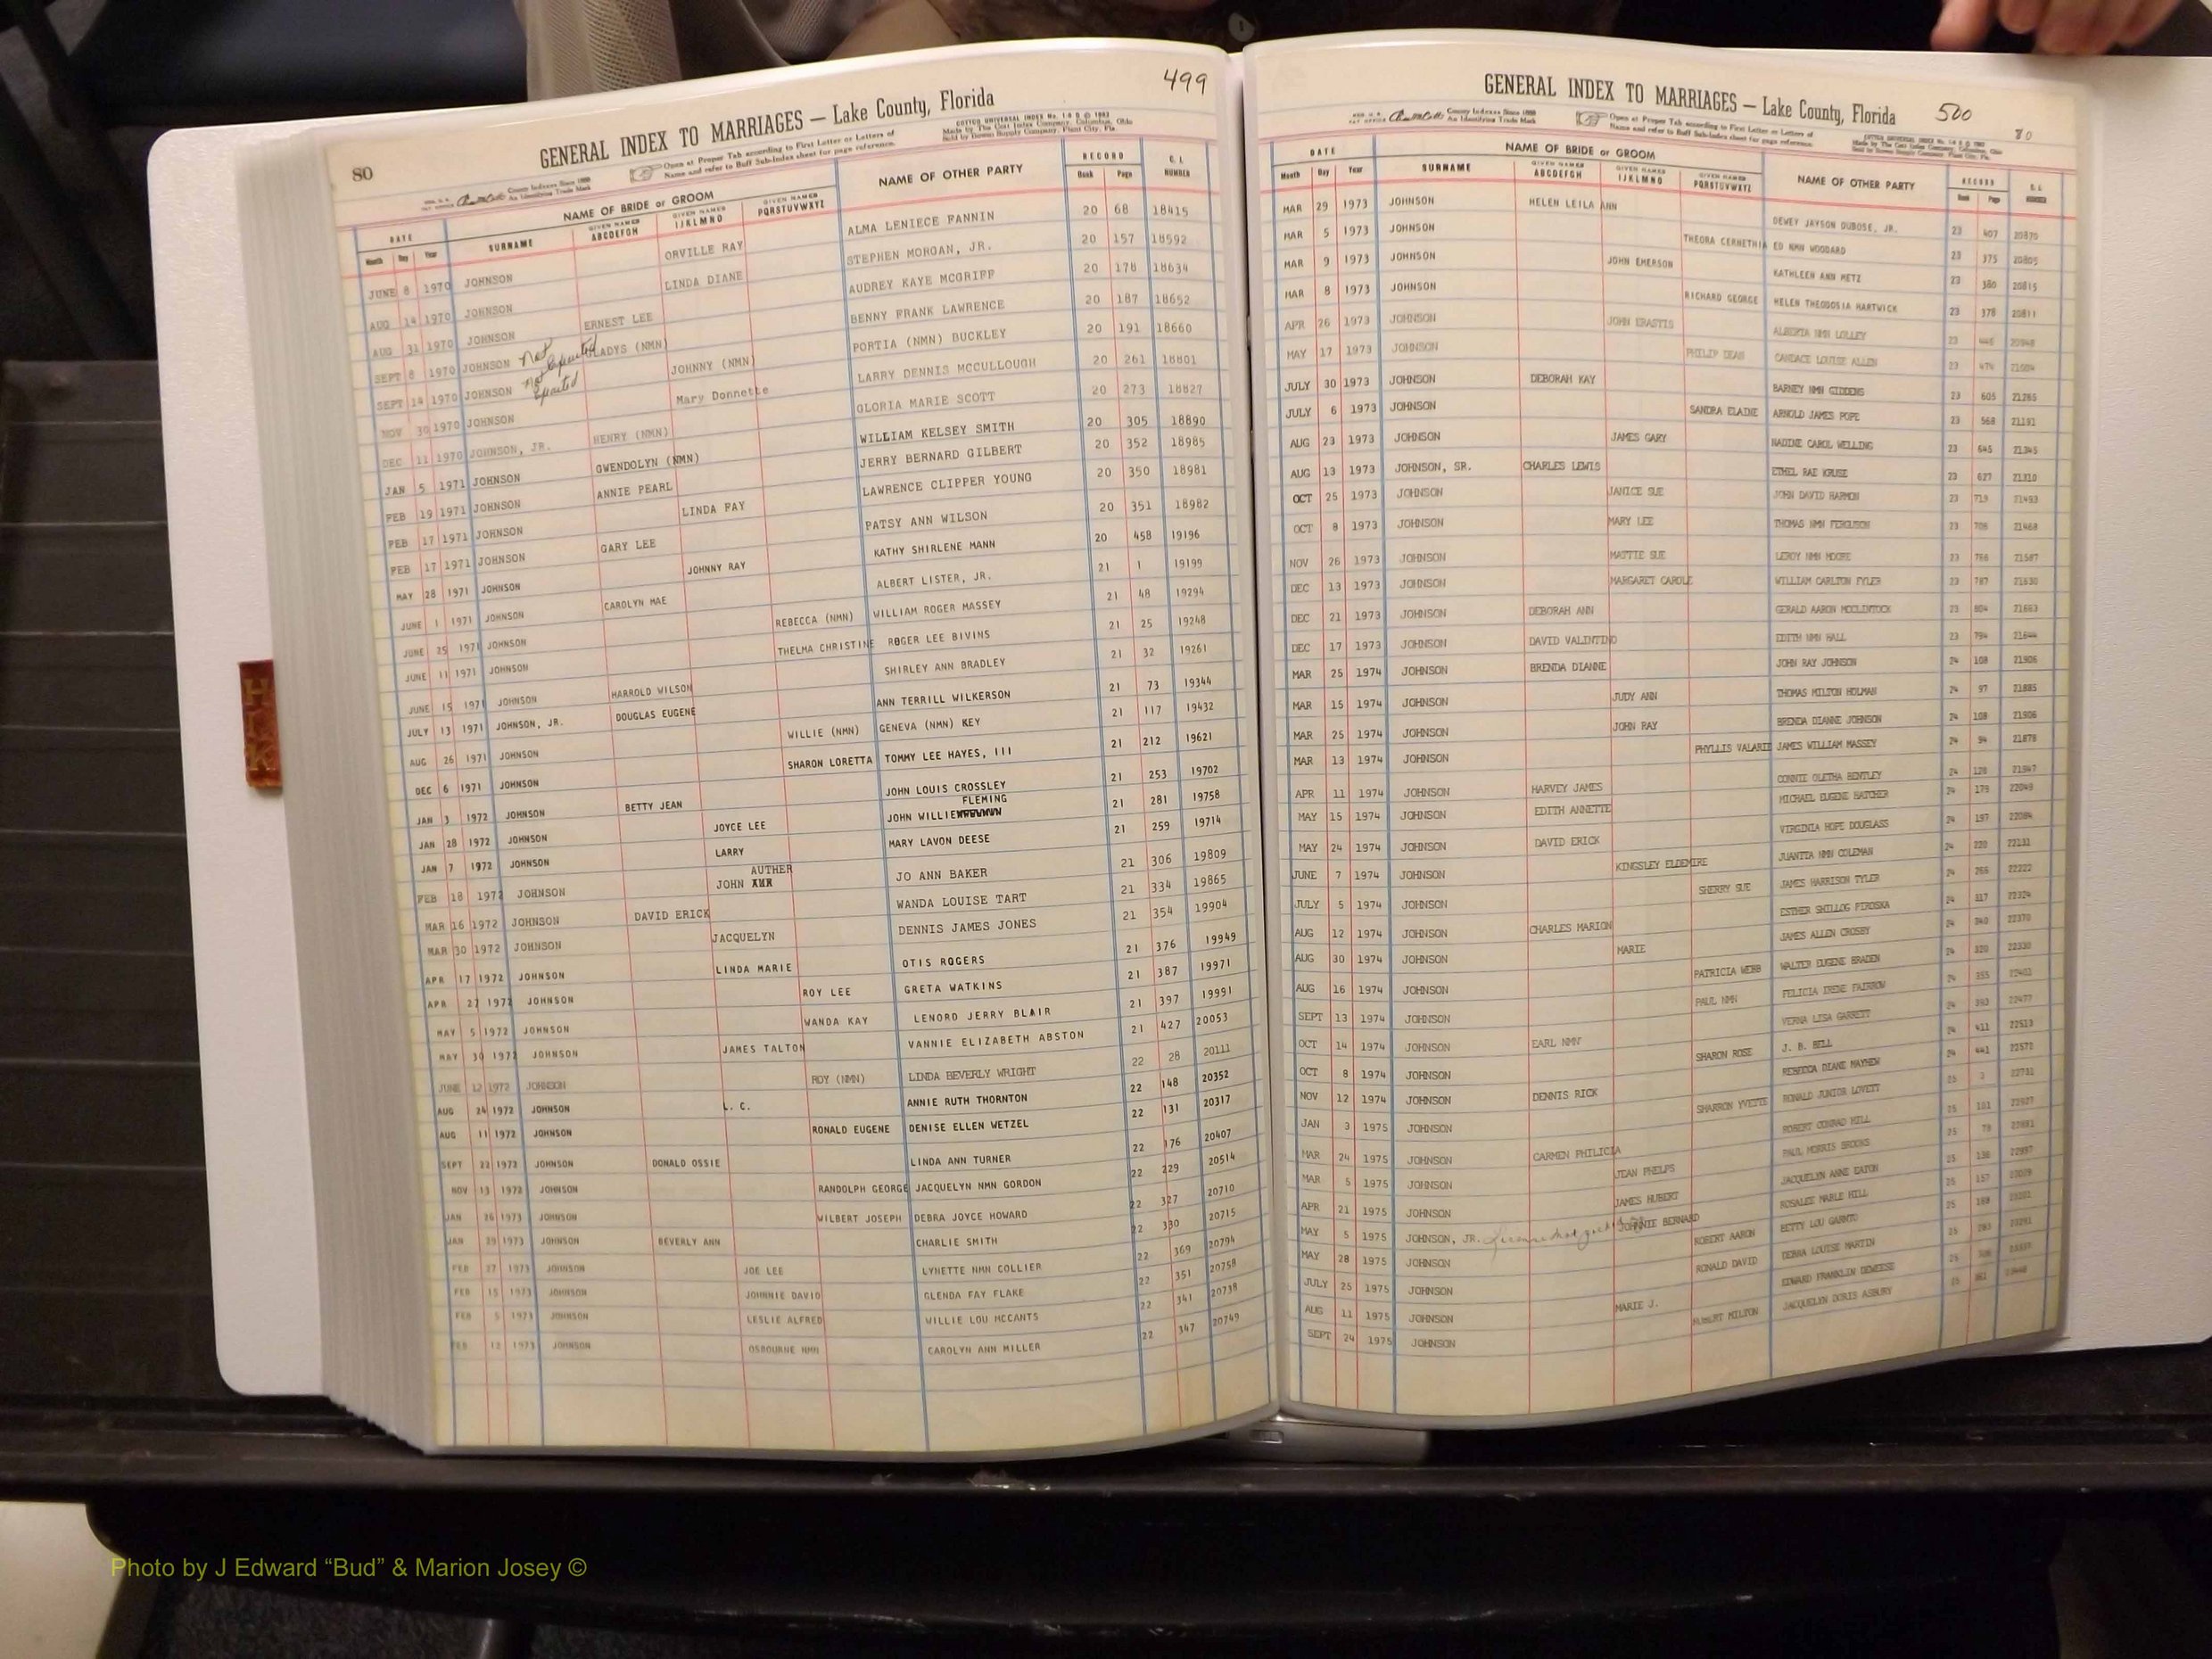 80
499
GENERAL INDEX TO MARRIAGES — Lake County, Florida
County Indexes Since 1888
An Identifying Trade Mark
Open at Proper Tab according to First Letter or Letters of
Name and refer to Buff Sub-Index sheet for page reference.
DATE NAME OF BRIDE or GROOM NAME OF OTHER PARTY RECORD
Month Day Year SURNAME GIVEN NAMES ABCDEFGH GIVEN NAMES IJKLMNO GIVEN NAMES PQRSTUVWXYZ Book Page NUMBER
JUNE 8 1970 JOHNSON ORVILLE RAY ALMA LENIECE FANNIN 20 68 18415
AUG 14 1970 JOHNSON LINDA DIANE STEPHEN MORGAN, JR. 20 157 18592
AUG 31 1970 JOHNSON ERNEST LEE AUDREY KAYE MCGRIFF 20 178 18634
SEPT 8 1970 JOHNSON Not GLADYS (NMN) BENNY FRANK LAWRENCE 20 187 18652
SEPT 14 1970 JOHNSON Not JOHNNY (NMN) PORTIA (NMN) BUCKLEY 20 191 18660
NOV 30 1970 JOHNSON Mary Donnette LARRY DENNIS MCCULLOUGH 20 261 18801
DEC 11 1970 JOHNSON, JR. HENRY (NMN) GLORIA MARIE SCOTT 20 273 18827
JAN 5 1971 JOHNSON GWENDOLYN (NMN) WILLIAM KELSEY SMITH 20 305 18890
FEB 19 1971 JOHNSON ANNIE PEARL JERRY BERNARD GILBERT 20 352 18985
FEB 17 1971 JOHNSON LINDA FAY LAWRENCE CLIPPER YOUNG 20 350 18981
FEB 17 1971 JOHNSON GARY LEE PATSY ANN WILSON 20 351 18982
MAY 28 1971 JOHNSON JOHNNY RAY KATHY SHIRLENE MANN 20 458 19196
JUNE 1 1971 JOHNSON CAROLYN MAE ALBERT LISTER, JR. 21 1 19199
JUNE 25 1971 JOHNSON REBECCA (NMN) WILLIAM ROGER MASSEY 21 48 19294
JUNE 11 1971 JOHNSON THELMA CHRISTINE ROGER LEE BIVINS 21 25 19248
JUNE 15 1971 JOHNSON HARROLD WILSON SHIRLEY ANN BRADLEY 21 32 19261
JULY 13 1971 JOHNSON, JR. DOUGLAS EUGENE ANN TERRILL WILKERSON 21 73 19344
AUG 26 1971 JOHNSON WILLIE (NMN) GENEVA (NMN) KEY 21 117 19432
DEC 6 1971 JOHNSON SHARON LORETTA TOMMY LEE HAYES, III 21 212 19621
JAN 3 1972 JOHNSON BETTY JEAN JOHN LOUIS CROSSLEY 21 253 19702
JAN 28 1972 JOHNSON JOYCE LEE JOHN WILLIE FLEMING 21 281 19758
JAN 7 1972 JOHNSON LARRY MARY LAVON DEESE 21 259 19714
FEB 18 1972 JOHNSON JOHN AUTHER JO ANN BAKER 21 306 19809
MAR 16 1972 JOHNSON DAVID ERICK WANDA LOUISE TART 21 334 19865
MAR 30 1972 JOHNSON JACQUELYN DENNIS JAMES JONES 21 354 19904
APR 17 1972 JOHNSON LINDA MARIE OTIS ROGERS 21 376 19949
APR 27 1972 JOHNSON ROY LEE GRETA WATKINS 21 387 19971
MAY 5 1972 JOHNSON WANDA KAY LENORD JERRY BLAIR 21 397 19991
MAY 30 1972 JOHNSON JAMES TALTON VANNIE ELIZABETH ABSTON 21 427 20053
JUNE 12 1972 JOHNSON ROY (NMN) LINDA BEVERLY WRIGHT 22 28 20111
AUG 24 1972 JOHNSON L. C. ANNIE RUTH THORNTON 22 148 20352
AUG 11 1972 JOHNSON RONALD EUGENE DENISE ELLEN WETZEL 22 131 20317
SEPT 22 1972 JOHNSON DONALD OSSIE LINDA ANN TURNER 22 176 20407
NOV 13 1972 JOHNSON RANDOLPH GEORGE JACQUELYN NMN GORDON 22 229 20514
JAN 26 1973 JOHNSON WILBERT JOSEPH DEBRA JOYCE HOWARD 22 327 20710
JAN 29 1973 JOHNSON BEVERLY ANN CHARLIE SMITH 22 330 20715
FEB 27 1973 JOHNSON JOE LEE LYNETTE NMN COLLIER 22 369 20794
FEB 15 1973 JOHNSON JOHNNIE DAVID GLENDA FAY FLAKE 22 351 20758
FEB 5 1973 JOHNSON LESLIE ALFRED WILLIE LOU MCCANTS 22 341 20738
FEB 12 1973 JOHNSON OSBOURNE NMN CAROLYN ANN MILLER 22 347 20749
GENERAL INDEX TO MARRIAGES — Lake County, Florida
500
80
County Indexes Since 1888
An Identifying Trade Mark
Open at Proper Tab according to First Letter or Letters of
Name and refer to Buff Sub-Index sheet for page reference.
DATE NAME OF BRIDE or GROOM NAME OF OTHER PARTY RECORD
Month Day Year SURNAME GIVEN NAMES ABCDEFGH GIVEN NAMES IJKLMNO GIVEN NAMES PQRSTUVWXYZ Book Page NUMBER
MAR 29 1973 JOHNSON HELEN LEILA ANN DEWEY JAYSON DUBOSE, JR. 23 407 20870
MAR 5 1973 JOHNSON THEORA CERNETHIA ED NMN WOODARD 23 375 20805
MAR 9 1973 JOHNSON JOHN EMERSON KATHLEEN ANN METZ 23 380 20815
MAR 8 1973 JOHNSON RICHARD GEORGE HELEN THEODOSIA HARTWICK 23 378 20811
APR 26 1973 JOHNSON JOHN ERASTIS ALBERTA NMN LOLLEY 23
MAY 17 1973 JOHNSON PHILIP DEAN CANDACE LOUISE ALLEN 23
JULY 30 1973 JOHNSON DEBORAH KAY BARNEY NMN GIDDENS 23 605 21265
JULY 6 1973 JOHNSON SANDRA ELAINE ARNOLD JAMES POPE 23 568 21191
AUG 23 1973 JOHNSON JAMES GARY NADINE CAROL WELLING 23 645 21345
AUG 13 1973 JOHNSON, SR. CHARLES LEWIS ETHEL RAE KRUSE 23 627 21310
OCT 25 1973 JOHNSON JANICE SUE JOHN DAVID HARMON 23 719 21493
OCT 8 1973 JOHNSON MARY LEE THOMAS NMN FERGUSON 23 706 21468
NOV 26 1973 JOHNSON MATTIE SUE LEROY NMN MOORE 23 766 21587
DEC 13 1973 JOHNSON MARGARET CAROLE WILLIAM CARLTON FYLER 23 787 21630
DEC 21 1973 JOHNSON DEBORAH ANN GERALD AARON MCCLINTOCK 23 804 21663
DEC 17 1973 JOHNSON DAVID VALINTINO EDITH NMN HALL 23 794 21644
MAR 25 1974 JOHNSON BRENDA DIANNE JOHN RAY JOHNSON 24 108 21906
MAR 15 1974 JOHNSON JUDY ANN THOMAS MILTON HOLMAN 24 97 21885
MAR 25 1974 JOHNSON JOHN RAY BRENDA DIANNE JOHNSON 24 108 21906
MAR 13 1974 JOHNSON PHYLLIS VALARIE JAMES WILLIAM MASSEY 24 94 21878
APR 11 1974 JOHNSON HARVEY JAMES CONNIE OLETHA BENTLEY 24 128 21947
MAY 15 1974 JOHNSON EDITH ANNETTE MICHAEL EUGENE HATCHER 24 179 22049
MAY 24 1974 JOHNSON DAVID ERICK VIRGINIA HOPE DOUGLASS 24 197 22084
JUNE 7 1974 JOHNSON KINGSLEY ELDEMIRE JUANITA NMN COLEMAN 24 220 22131
JULY 5 1974 JOHNSON SHERRY SUE JAMES HARRISON TYLER 24 266 22222
AUG 12 1974 JOHNSON CHARLES MARION ESTHER SHILLOG PIROSKA 24 317 22324
AUG 30 1974 JOHNSON MARIE JAMES ALLEN CROSBY 24 340 22370
AUG 16 1974 JOHNSON PATRICIA WEBB WALTER EUGENE BRADEN 24 320 22330
SEPT 13 1974 JOHNSON PAUL NMN FELICIA IRENE FAIRROW 24 355 22402
OCT 14 1974 JOHNSON EARL NMN VERNA LISA GARRETT 24 393 22477
OCT 8 1974 JOHNSON SHARON ROSE J. B. BELL 24 411 22513
NOV 12 1974 JOHNSON DENNIS RICK REBECCA DIANE MAYHEW 24 441 22572
JAN 3 1975 JOHNSON SHARRON YVETTE RONALD JUNIOR LOVETT 25 3
MAR 24 1975 JOHNSON CARMEN PHILICIA ROBERT CONRAD HILL 25
MAR 5 1975 JOHNSON JEAN PHELPS PAUL MORRIS BROOKS 25 78
APR 21 1975 JOHNSON JAMES HUBERT JACQUELYN ANNE EATON 25
MAY 5 1975 JOHNSON, JR. JOHNNIE BERNARD ROSALEE MABLE HILL 25 157
MAY 28 1975 JOHNSON ROBERT AARON BETTY LOU GARNTO 25
JULY 25 1975 JOHNSON RONALD DAVID DEBRA LOUISE MARTIN 25
AUG 11 1975 JOHNSON MARIE J. EDWARD FRANKLIN DEWEESE 25
SEPT 24 1975 JOHNSON HUBERT MILTON JACQUELYN DORIS ASBURY 25
Photo by J Edward “Bud” & Marion Josey ©